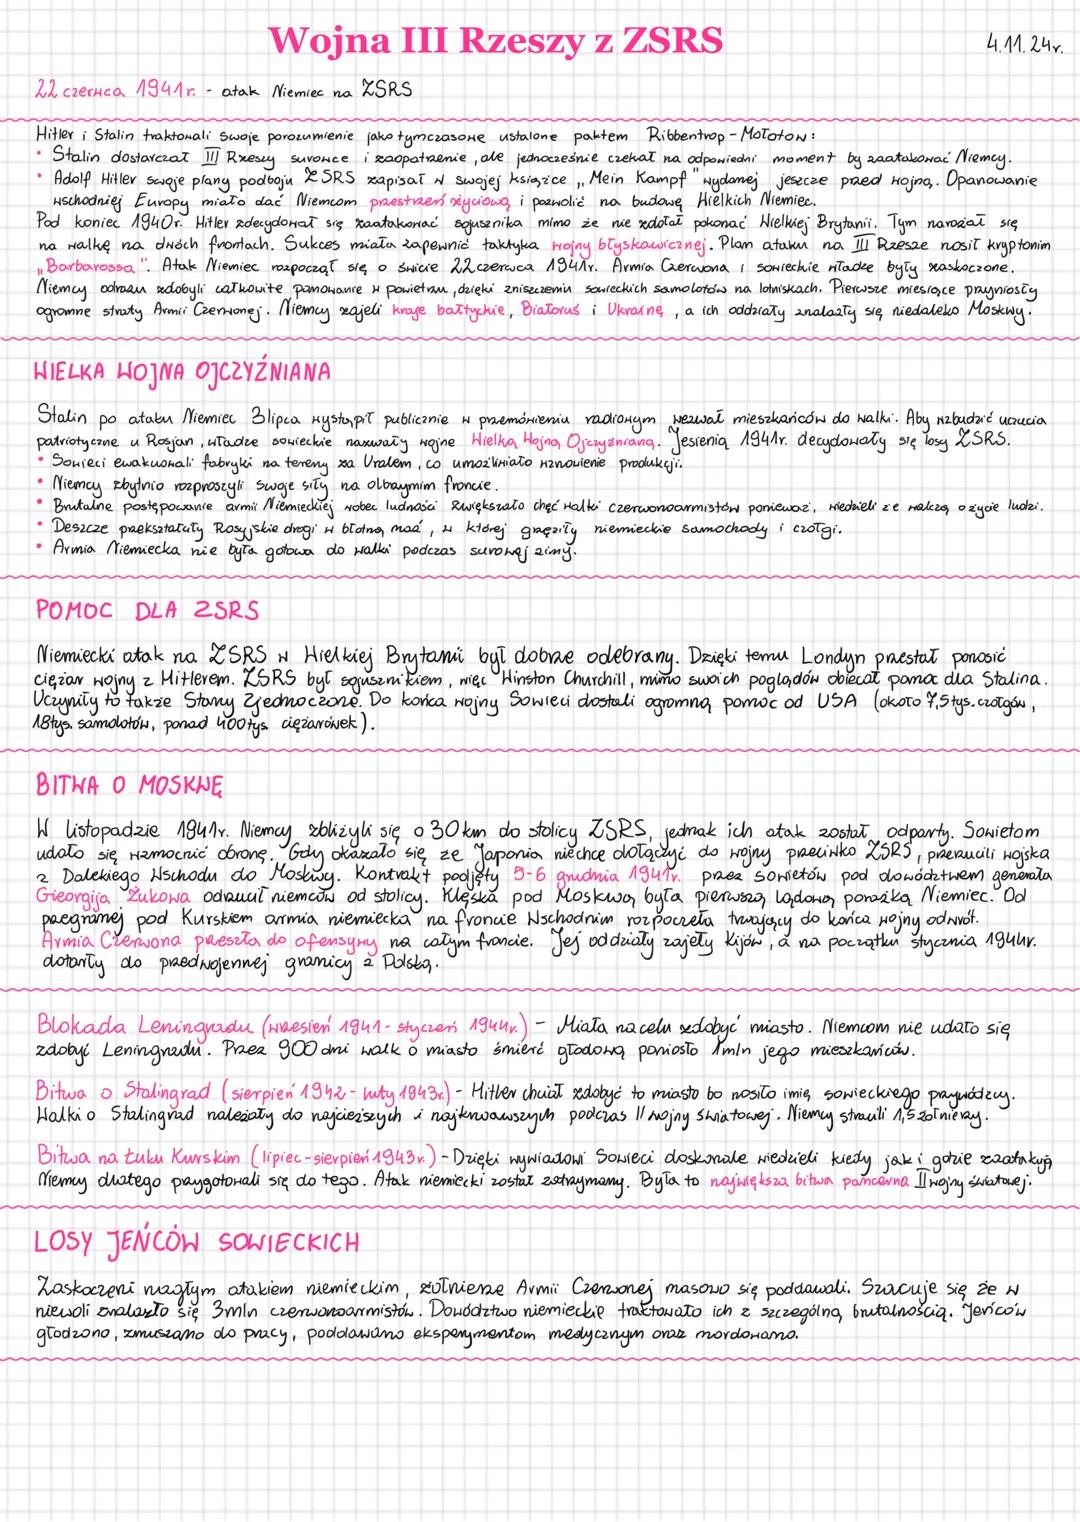 Wojna III Rzeszy z ZSRS
4.11.24r.
22 czerwca 1941r. - atak Niemiec na ZSRS
Hitler i Stalin traktowali swoje porozumienie jako tymczasowe ustalone paktem Ribbentrop - Mołotow:
• Stalin dostarczał III Rzeszy surowce i zaopatrzenie, ale jednocześnie czekał na odpowiedni moment by zaatakować Niemcy.
• Adolf Hitler swoje plany podboju ZSRS zapisał w swojej książce „Mein Kampf" wydanej jeszcze przed wojną. Opanowanie
wschodniej Europy miało dać Niemcom przestrzeń życiową i pozwolić na budowę Wielkich Niemiec.
Pod koniec 1940r. Hitler zdecydował się zaatakować sojusznika mimo że nie zdołał pokonać Wielkiej Brytanii. Tym narażał się
na walkę na dwóch frontach. Sukces miała zapewnić taktyka wojny błyskawicznej. Plan ataku na III Rzesze nosił kryptonim
„Barbarossa". Atak Niemiec rozpoczął się o świcie 22 czerwca 1941r. Armia Czerwona i sowieckie władze były zaskoczone.
Niemcy odrazu zdobyli całkowite panowanie w powietrzu, dzięki zniszczeniu sowieckich samolotów na lotniskach. Pierwsze miesiące przyniosły
ogromne straty Armii Czerwonej. Niemcy zajeli kraje bałtyckie, Białoruś i Ukrainę, a ich oddziały znalazły się niedaleko Moskwy.
WIELKA WOJNA OJCZYŹNIANA
Stalin po ataku Niemiec 3 lipca wystąpił publicznie w przemówieniu radiowym wezwał mieszkańców do walki. Aby wzbudzić uczucia
patriotyczne u Rosjan, władze sowieckie nazwały wojne Wielką Wojną Ojczyźnianą. Jesienią 1941r. decydowały się losy ZSRS.
• Sowieci ewakuowali fabryki na tereny za Uralem, co umożliwiało wznowienie produkcji.
• Niemcy zbytnio rozproszyli swoje siły na olbrzymim froncie.
• Brutalne postępowanie armii Niemieckiej wobec ludności zwiększało chęć walki czerwonoarmistów ponieważ, wiedzieli że walczą o życie ludzi.
• Deszcze przekształcały Rosyjskie drogi w błotną maź, w której grzęzły niemieckie samochody i czołgi.
• Armia Niemiecka nie była gotowa do walki podczas surowej zimy.
POMOC DLA ZSRS
Niemiecki atak na ZSRS w Wielkiej Brytanii był dobrze odebrany. Dzięki temu Londyn przestał ponosić
ciężar wojny z Hitlerem. ZSRS był sojusznikiem, więc Winston Churchill, mimo swoich poglądów obiecał pomoc dla Stalina.
Uczyniły to także Stany Zjednoczone. Do końca wojny Sowieci dostali ogromną pomoc od USA (około 7,5 tys. czołgów,
18tys. samolotów, ponad 400tys. ciężarówek).
BITWA O MOSKWĘ
W listopadzie 1941r. Niemcy zbliżyli się o 30 km do stolicy ZSRS, jednak ich atak został odparty. Sowietom
udało się wzmocnić obronę. Gdy okazało się ze Japonia niechce dołączyć do wojny przeciwko ZSRS, przerzucili wojska
z Dalekiego Wschodu do Moskwy. Kontratakt podjęty 5-6 grudnia 1941r. przez sowietów pod dowództwem generała
Gieorgija Żukowa odrzucił niemców od stolicy. Klęska pod Moskwą była pierwszą lądową porażką Niemiec. Od
przegranej pod Kurskiem armia niemiecka na froncie Wschodnim rozpoczęła trwający do końca wojny odwrót.
Armia Czerwona przeszła do ofensywy na całym froncie. Jej oddziały zajęły Kijów, a na początku stycznia 1944r.
dotarły do przedwojennej granicy z Polską.
Blokada Leningradu (wrzesień 1941 - styczeń 1944r.) - Miała na celu zdobyć miasto. Niemcom nie udało się
zdobyć Leningradu. Przez 900 dni walk o miasto śmierć głodową poniosło 1mln jego mieszkańców.
Bitwa o Stalingrad (sierpień 1942 - luty 1943r.) - Hitler chciał zdobyć to miasto bo nosiło imię sowieckiego przywódzcy.
Walki o Stalingrad należały do najcięższych i najkrwawszych podczas II wojny światowej. Niemcy stracili 1,5 żołnierzy.
Bitwa na Łuku Kurskim (lipiec - sierpień 1943r.) - Dzięki wywiadowi Sowieci doskonale wiedzieli kiedy jak i gdzie zaatakują
Niemcy dlatego przygotowali się do tego. Atak niemiecki został zatrzymany. Była to największa bitwa pancerna II wojny światowej.
LOSY JEŃCÓW SOWIECKICH
Zaskoczeni nagłym atakiem niemieckim, żołnierze Armii Czerwonej masowo się poddawali. Szacuje się że w
niewoli znalazło się 3mln czerwonoarmistów. Dowództwo niemieckie traktowało ich z szczególną brutalnością. Jeńców
głodzono, zmuszano do pracy, poddawano eksperymentom medycznym oraz mordowano.